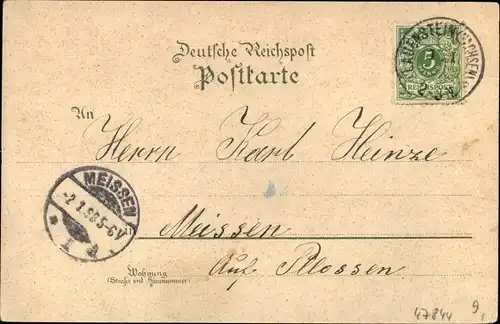 Deutsche Reichspost
Postkarte
LAUENSTEIN (SACHSEN)
5
REICHSPOST
An
Herrn Karl Heinze
MEISSEN
-2.1.98.5-6V
Meissen
Auf Plossen
Wohnung
(Straße und Hausnummer)
47844
9,